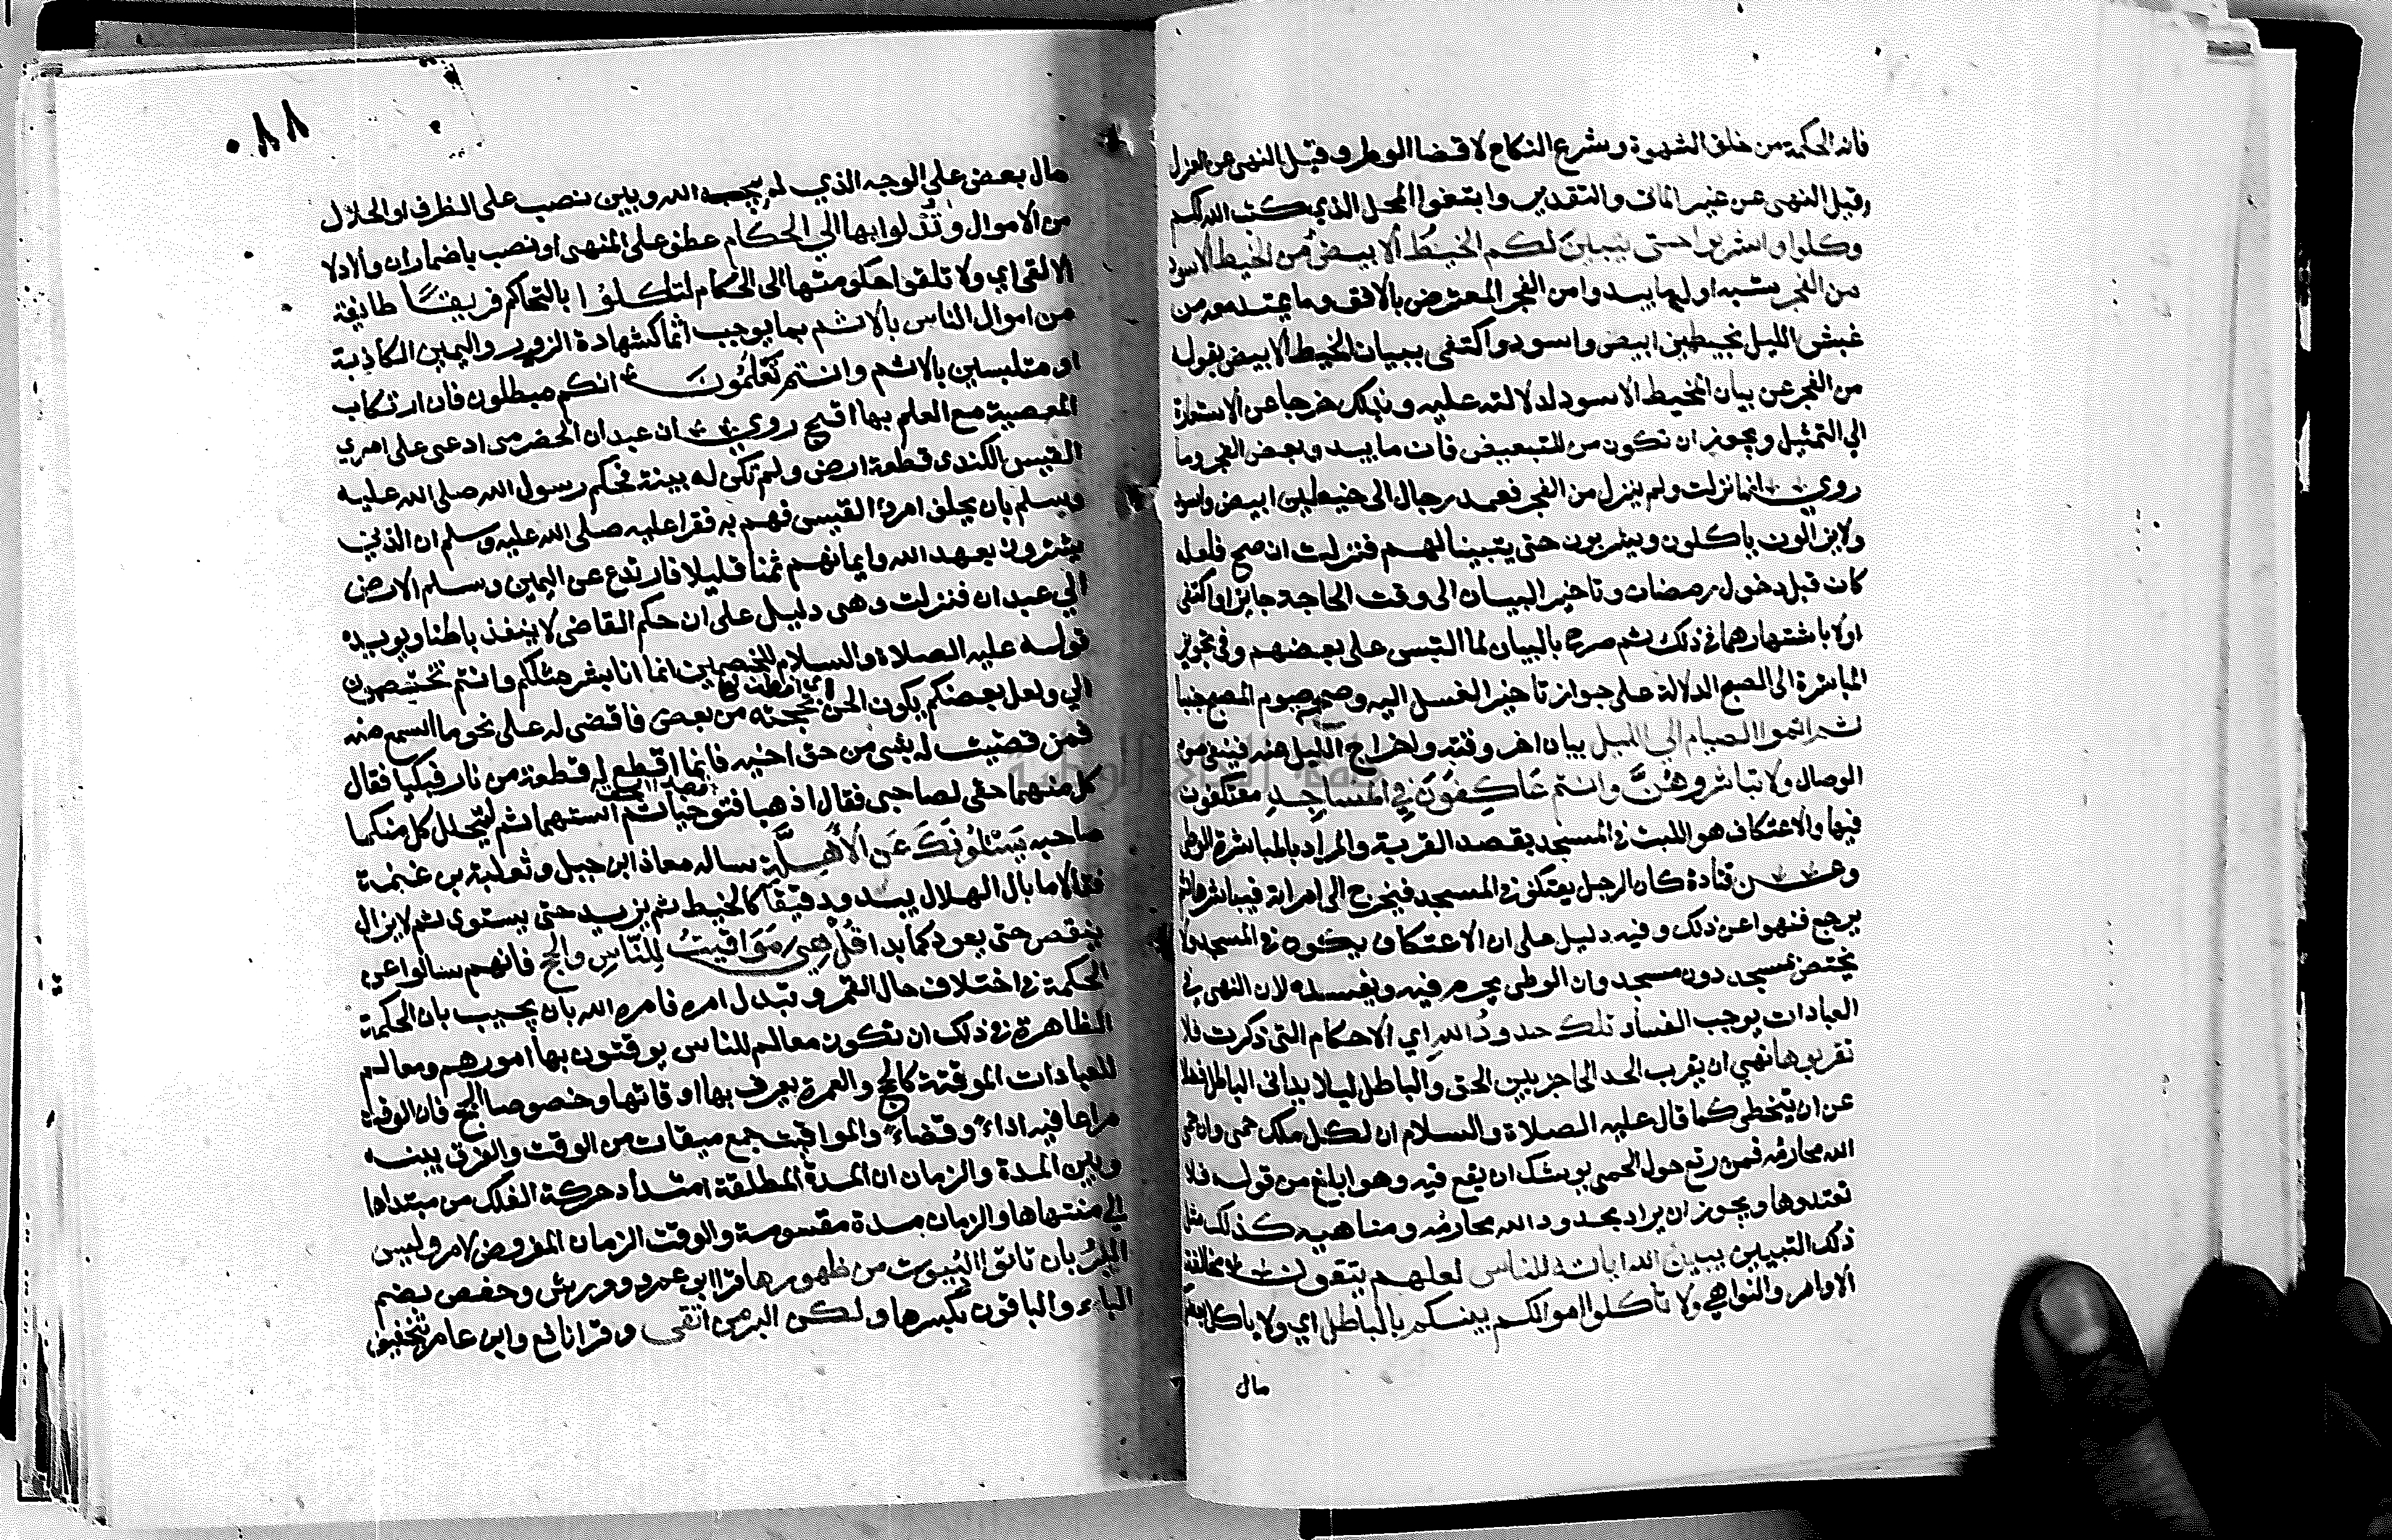 فانه الحكمة من خلق الشهوة وشرع النكاح لا قضا الوطر وقيل النهى عن العزل
وقيل النهى عن غير الماتى والتقدير وابتغوا المحل الذي كتب الله لكم
وكلوا واشربوا حتى يتبين لكم الخيط الابيض من الخيط الاسود
من الفجر شبه اول ما يبدوا من الفجر المعترض بالافق وما يمتد معه من
غبش الليل بخيطين ابيض واسود واكتفى ببيان الخيط الابيض بقوله
من الفجر عن بيان الخيط الاسود لدلالته عليه وبذلك خرجا عن الاستعارة
الي التمثيل ويجوز ان تكون من للتبعيض فان ما يبدو بعض الفجر وما
روي انها نزلت ولم ينزل من الفجر فعمد رجال الى خيطين ابيض واسود
ولا يزالون ياكلون ويشربون حتى يتبينا لهم فنزلت ان صح فلعله
كان قبل دخول رمضان وتاخير البيان الى وقت الحاجة جايز او اكتفى
اولا باشتهارهما في ذلك ثم صرح بالبيان لما التبس على بعضهم وفى تجويز
المباشرة الى الصبح الدلالة على جواز تاخير الغسل اليه وصحة صوم المصبح جنبا
ثم اتموا الصيام الي الليل بيان اخر وقته واخراج الليل عنه فينفى صوم
الوصال ولا تباشروهن وانتم عاكفون في المساجد معتكفون
فيها والاعتكاف هو اللبث في المسجد بقصد القربة والمراد بالمباشرة الوطى
وعن قتادة كان الرجل يعتكف في المسجد فيخرج الى امراته فيباشرها ثم
يرجع فنهوا عن ذلك وفيه دليل على ان الاعتكاف يكون في المسجد ولا
يختص بمسجد دون مسجد وان الوطى يحرم فيه ويفسده لان النهى في
العبادات يوجب الفساد تلك حدود الله اي الاحكام التى ذكرت فلا
تقربوها نهي ان يقرب الحد الحاجز بين الحق والباطل ليلا يدانى الباطل فضلا
عن ان يتخطى كما قال عليه الصلاة والسلام ان لكل ملك حمى وان حمى
الله محارمه فمن رتع حول الحمى يوشك ان يقع فيه وهو ابلغ من قوله فلا
تعتدوها ويجوز ان يراد بحدود الله محارمه ومناهيه كذلك مثل
ذلك التبيين يبين الله اياته للناس لعلهم يتقون مخالفة
الاوامر والنواهي ولا تاكلوا اموالكم بينكم بالباطل اي ولا ياكل بعضكم
مال
٠٨٨
مال بعض على الوجه الذي لم يبحه الله وبين نصب على الظرف او الحال
من الاموال وتدلوا بها الي الحكام عطف على المنهى او نصب باضمار ان والادلا
الالقى اي ولا تلقوا حكومتها الى الحكام لتاكلوا بالتحاكم فريقا طايفة
من اموال الناس بالاثم بما يوجب اثما كشهادة الزور واليمين الكاذبة
او متلبسين بالاثم وانتم تعلمون انكم مبطلون فان ارتكاب
المعصية مع العلم بها اقبح روي ان عبدان الحضرمى ادعى على امري
القيس الكندى قطعة ارض ولم تكن له بينة فحكم رسول الله صلى الله عليه
وسلم بان يحلف امرؤ القيس فهم به فقرا عليه صلى الله عليه وسلم ان الذين
يشترون بعهد الله وايمانهم ثمنا قليلا فارتدع عن اليمين وسلم الارض
الي عبدان فنزلت وهى دليل على ان حكم القاضى لا ينفذ باطنا ويويده
قوله عليه الصلاة والسلام للخصمين انما انا بشر مثلكم وانتم تختصمون
الي ولعل بعضكم يكون الحن بحجته من بعض فاقضى له على نحو ما اسمع منه
فمن قضيت له بشى من حق اخيه فانما اقطع له قطعة من نار فبكيا فقال
كل منهما حقى لصاحبى فقال اذهبا فتوخيا ثم استهما ثم ليحلل كل منكما
صاحبه يسئلونك عن الاهلة ساله معاذ ابن جبل وثعلبة بن غنمة
فقالا ما بال الهلال يبدو دقيقا كالخيط ثم يزيد حتى يستوى ثم لا يزال
ينقص حتى يعود كما بدا قل هي مواقيت للناس والحج فانهم سالوا عن
الحكمة في اختلاف حال القمر وتبدل امره فامره الله بان يجيب بان الحكمة
الظاهرة في ذلك ان تكون معالم للناس يوقتون بها امورهم ومعالم
للعبادات الموقتة كالحج والعمرة يعرف بها اوقاتها وخصوصا الحج فان الوقت
مراعا فيه اداء وقضاء والمواقيت جمع ميقات من الوقت والفرق بينه
وبين المدة والزمان ان المدة المطلقة امتداد حركة الفلك من مبتداها
الي منتهاها والزمان مدة مقسومة والوقت الزمان المفروض لامر وليس
البر بان تاتوا البيوت من ظهورها قرا ابو عمرو وورش وحفص بضم
الباء والباقون بكسرها ولكن البر من اتقى وقرا نافع وابن عامر بتخفيف